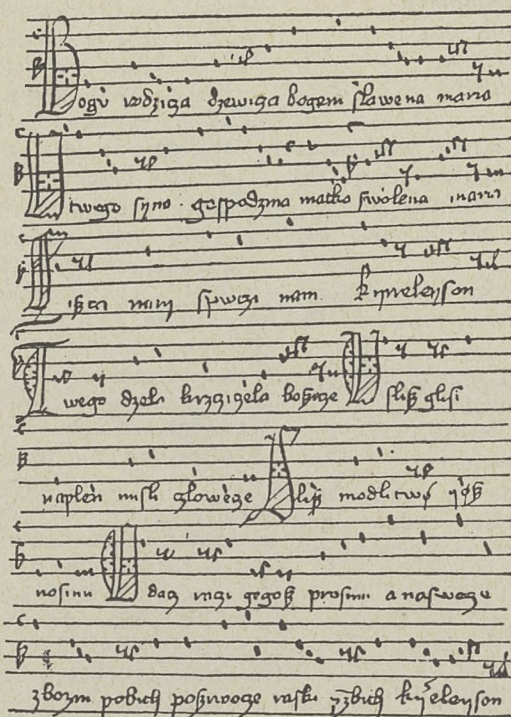 Bogu rodzicza dzewicza bogem slawena maria
U twego syna gospodzina matko swolena maria
Ziszczi nam spwczi nam Kyrieleyson
Twego dzela krzcziczela bozicze Uslisz glosi
naplen misli czlowecze Slisz modlitwo yosz
nosimi Oddacz raczi gegosz prosimi a naswecze
zbozni pobith posziwocze raski przebith kyrieleyson